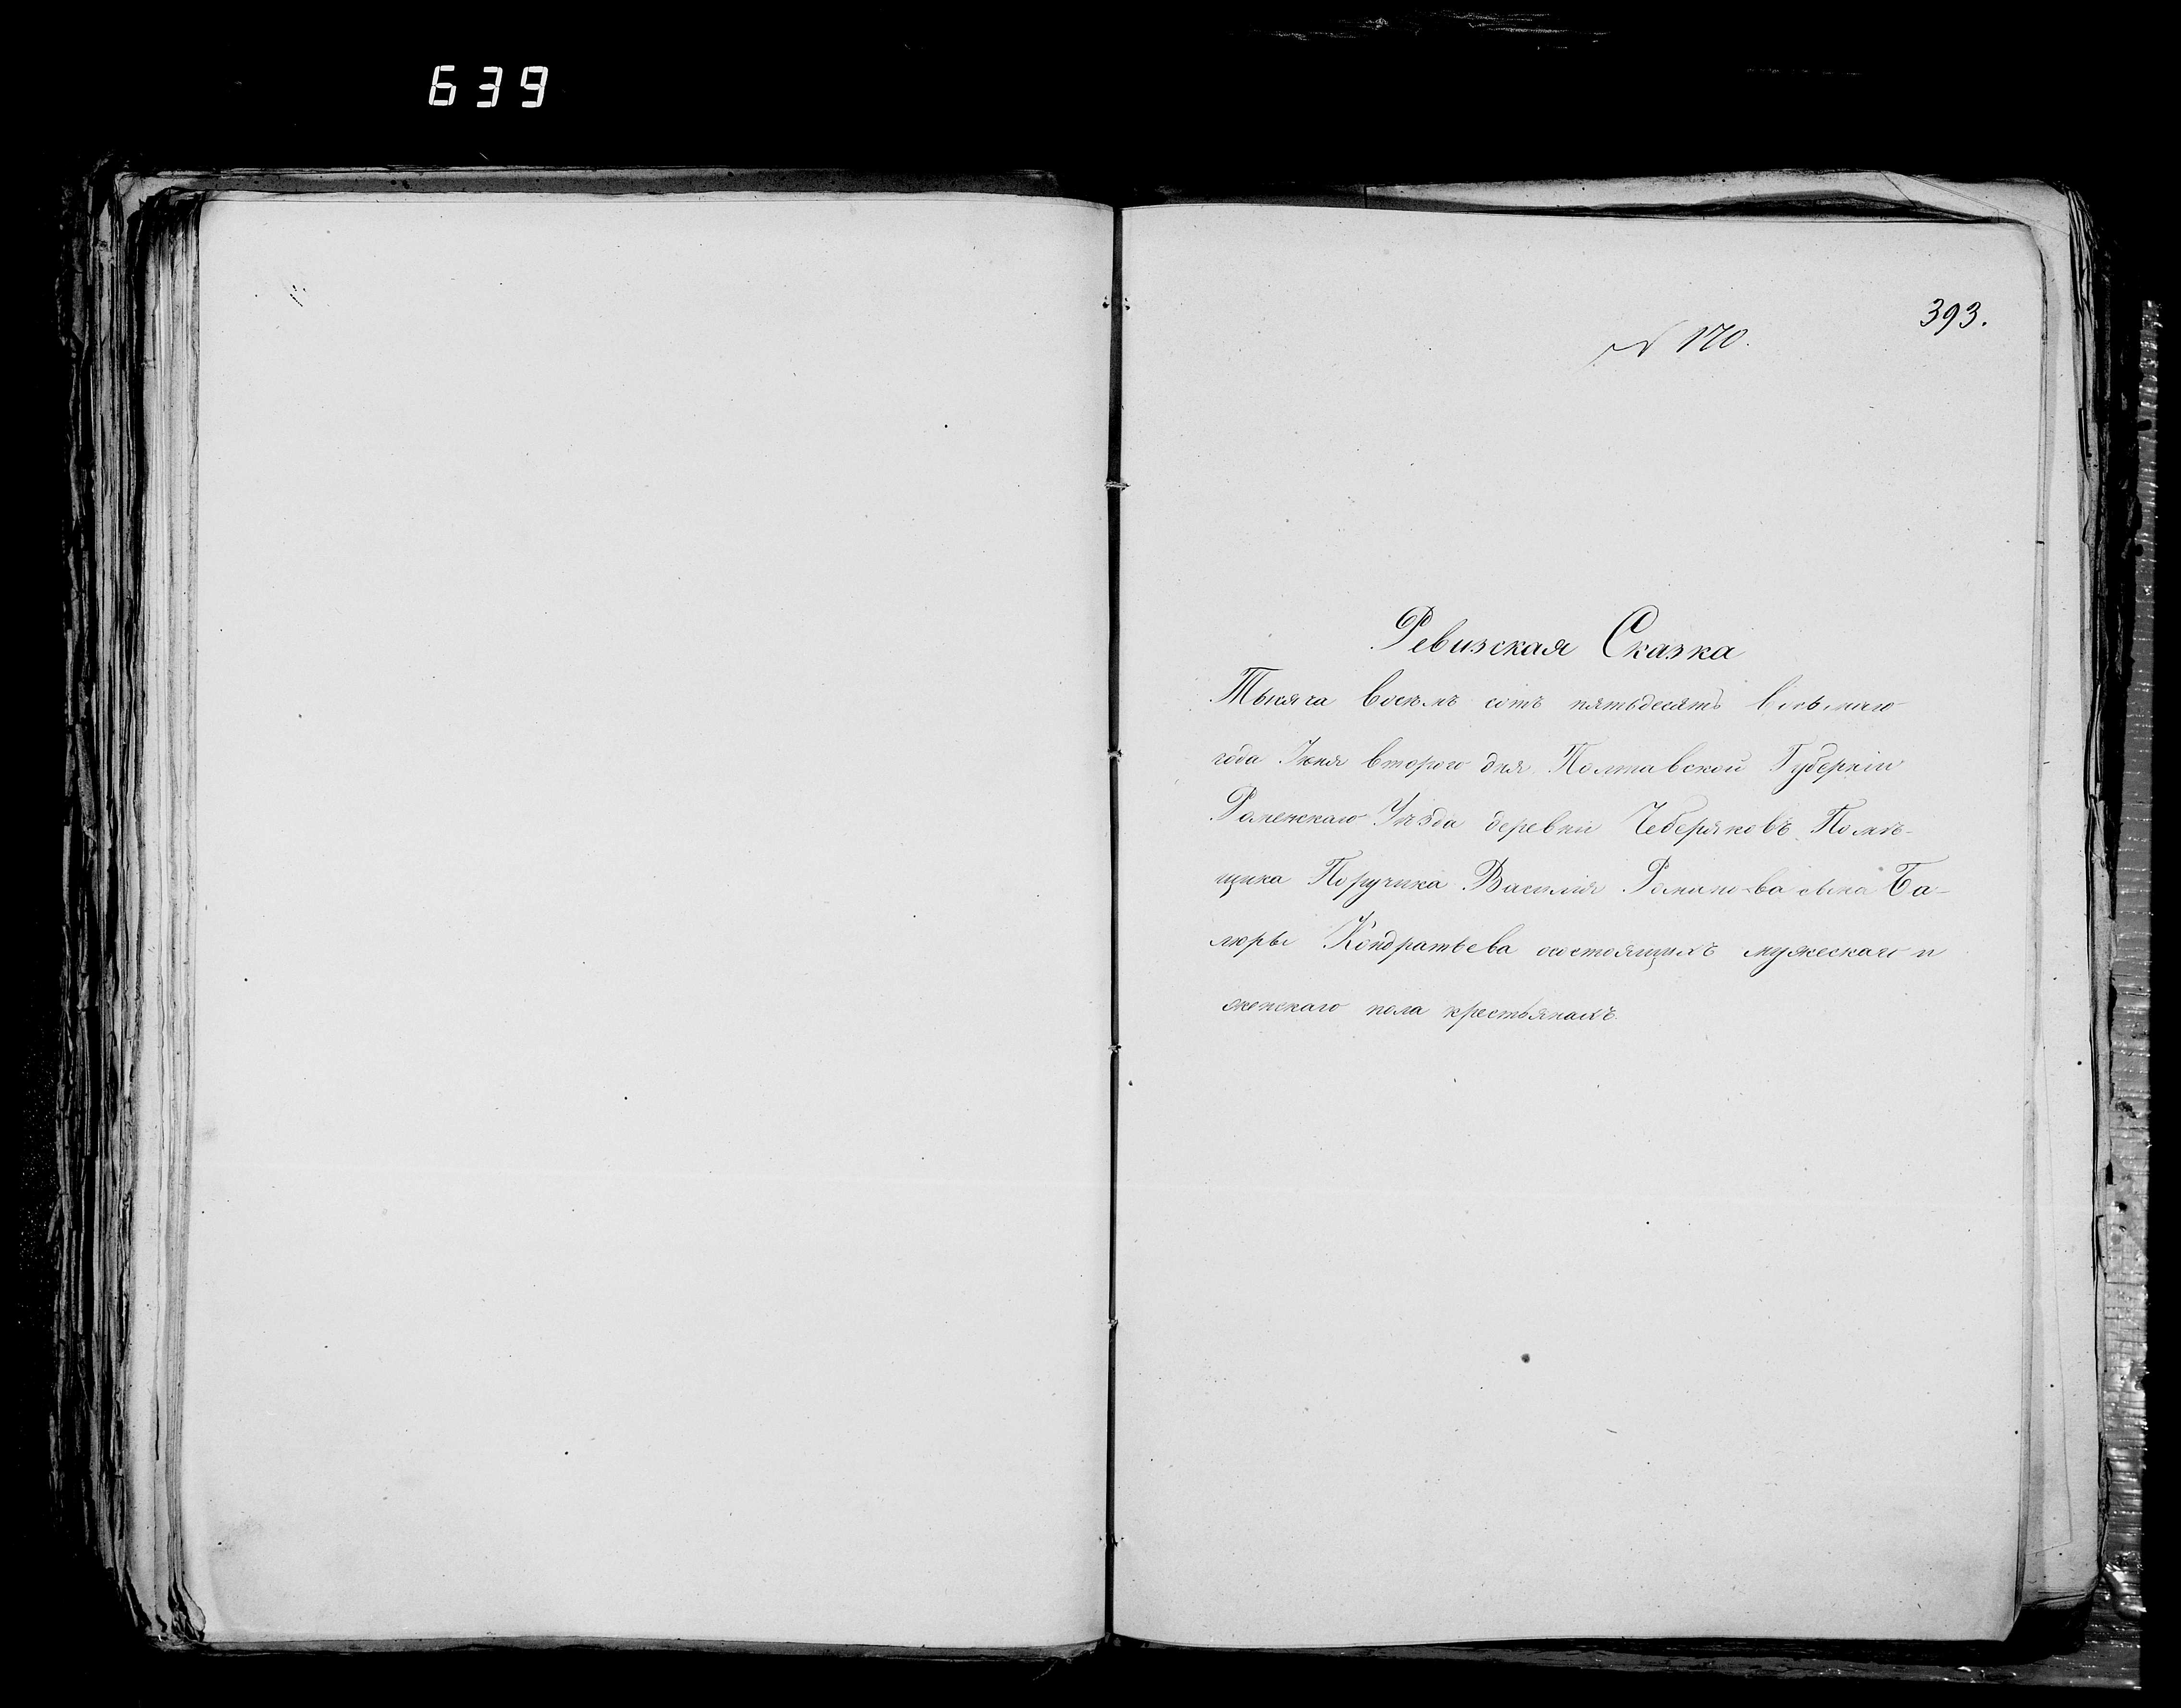 639
393.
№ 170.
Ревизская Сказка
Тысяча восемь сотъ пятьдесятъ восьмаго
года Іюня втораго дня Полтавской Губерніи
Роменскаго Уѣзда деревни Чеберяковъ Помѣ-
щика Поручика Василія Романова сына Ба-
люры Кондратьева осостоящихъ мужескаго и
женскаго пола крестьянахъ.